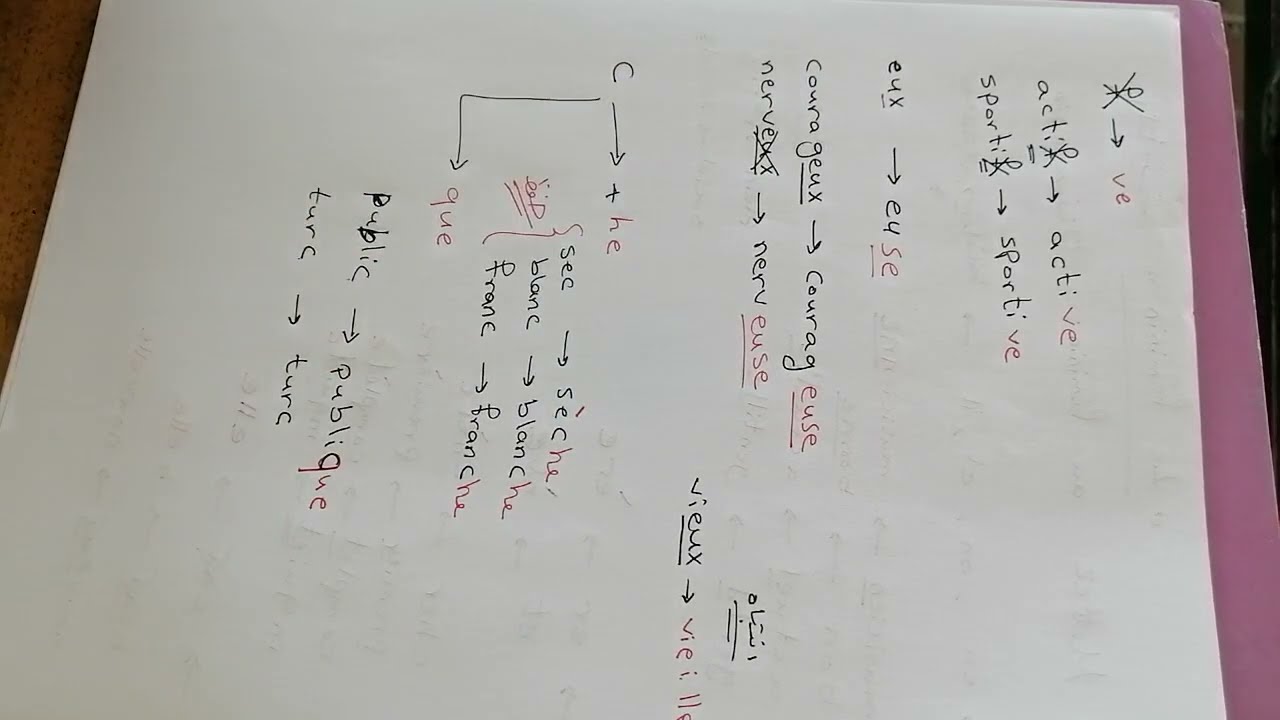 f → ve
actif → active
sportif → sportive
eux → euse
courageux → courageuse
nerveux → nerveuse
انتباه
vieux → vieille
c → + he
sec → sèche
blanc → blanche
franc → franche
فقط
que
public → publique
turc → turc